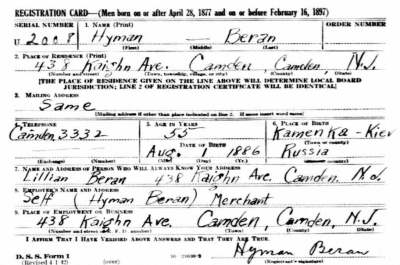 REGISTRATION CARD—(Men born on or after April 28, 1877 and on or before February 16, 1897)
SERIAL NUMBER 1. NAME (Print) ORDER NUMBER
U 2008 Hyman Beran
(First) (Middle) (Last)
2. PLACE OF RESIDENCE (Print)
438 Kaighn Ave. Camden, Camden N.J.
(Number and street) (Town, township, village, or city) (County) (State)
[THE PLACE OF RESIDENCE GIVEN ON THE LINE ABOVE WILL DETERMINE LOCAL BOARD
JURISDICTION; LINE 2 OF REGISTRATION CERTIFICATE WILL BE IDENTICAL]
3. MAILING ADDRESS
Same
[Mailing address if other than place indicated on line 2. If same insert word same]
4. TELEPHONE 5. AGE IN YEARS 6. PLACE OF BIRTH
Camden 3332 55 Kamenka - Kiev
DATE OF BIRTH (Town or county)
Aug. 1 1886 Russia
(Exchange) (Number) (Mo.) (Day) (Yr.) (State or country)
7. NAME AND ADDRESS OF PERSON WHO WILL ALWAYS KNOW YOUR ADDRESS
Lillian Beran 438 Kaighn Ave. Camden. N.J.
8. EMPLOYER'S NAME AND ADDRESS
Self (Hyman Beran) Merchant
9. PLACE OF EMPLOYMENT OR BUSINESS
438 Kaighn Ave. Camden, Camden, N.J.
(Number and street or R. F. D. number) (Town) (County) (State)
I AFFIRM THAT I HAVE VERIFIED ABOVE ANSWERS AND THAT THEY ARE TRUE.
Hyman Beran
D. S. S. Form 1
(Revised 4-1-42) (over) (Registrant's signature)